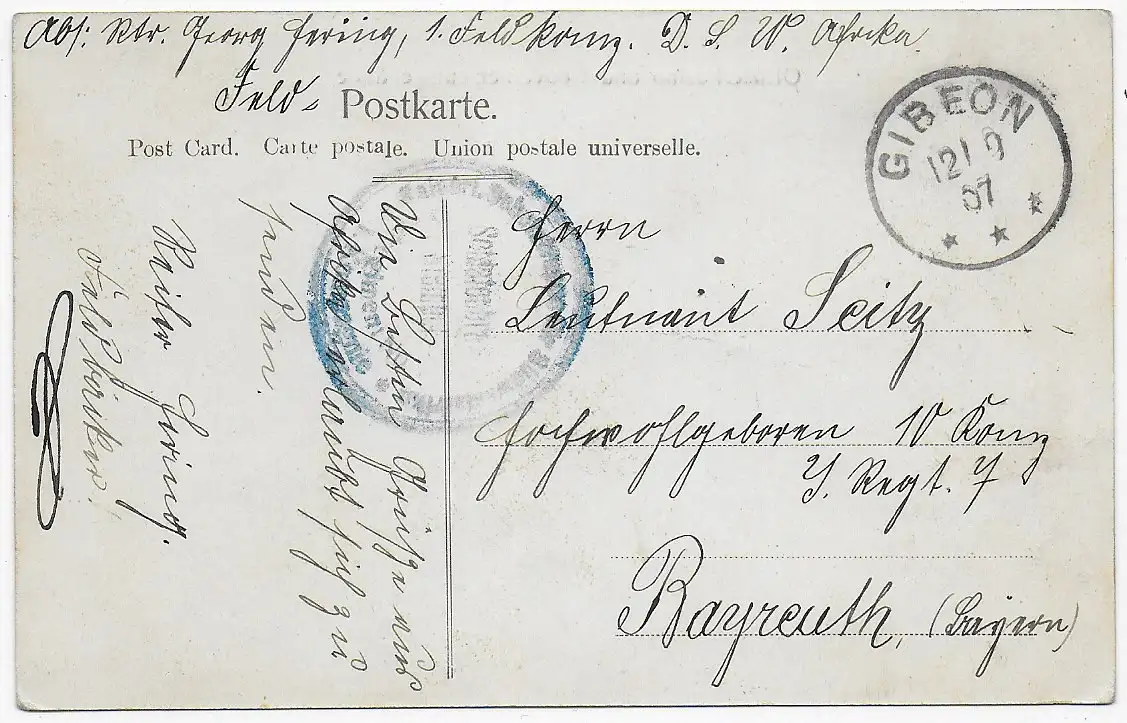 Abs: Rtr. Georg Hering, 1. Feldkomp. D. S. W. Afrika.
Feld-Postkarte.
Post Card. Carte postale. Union postale universelle.
GIBEON
12/9
07
Die Besten Grüße aus
Afrika erlaubt sich zu
senden.
Reiter Hering.
Herrn
Leutnant Seitz
Hochwohlgeboren 10 Komp
I. Regt. 7
Bayreuth, (Bayern)